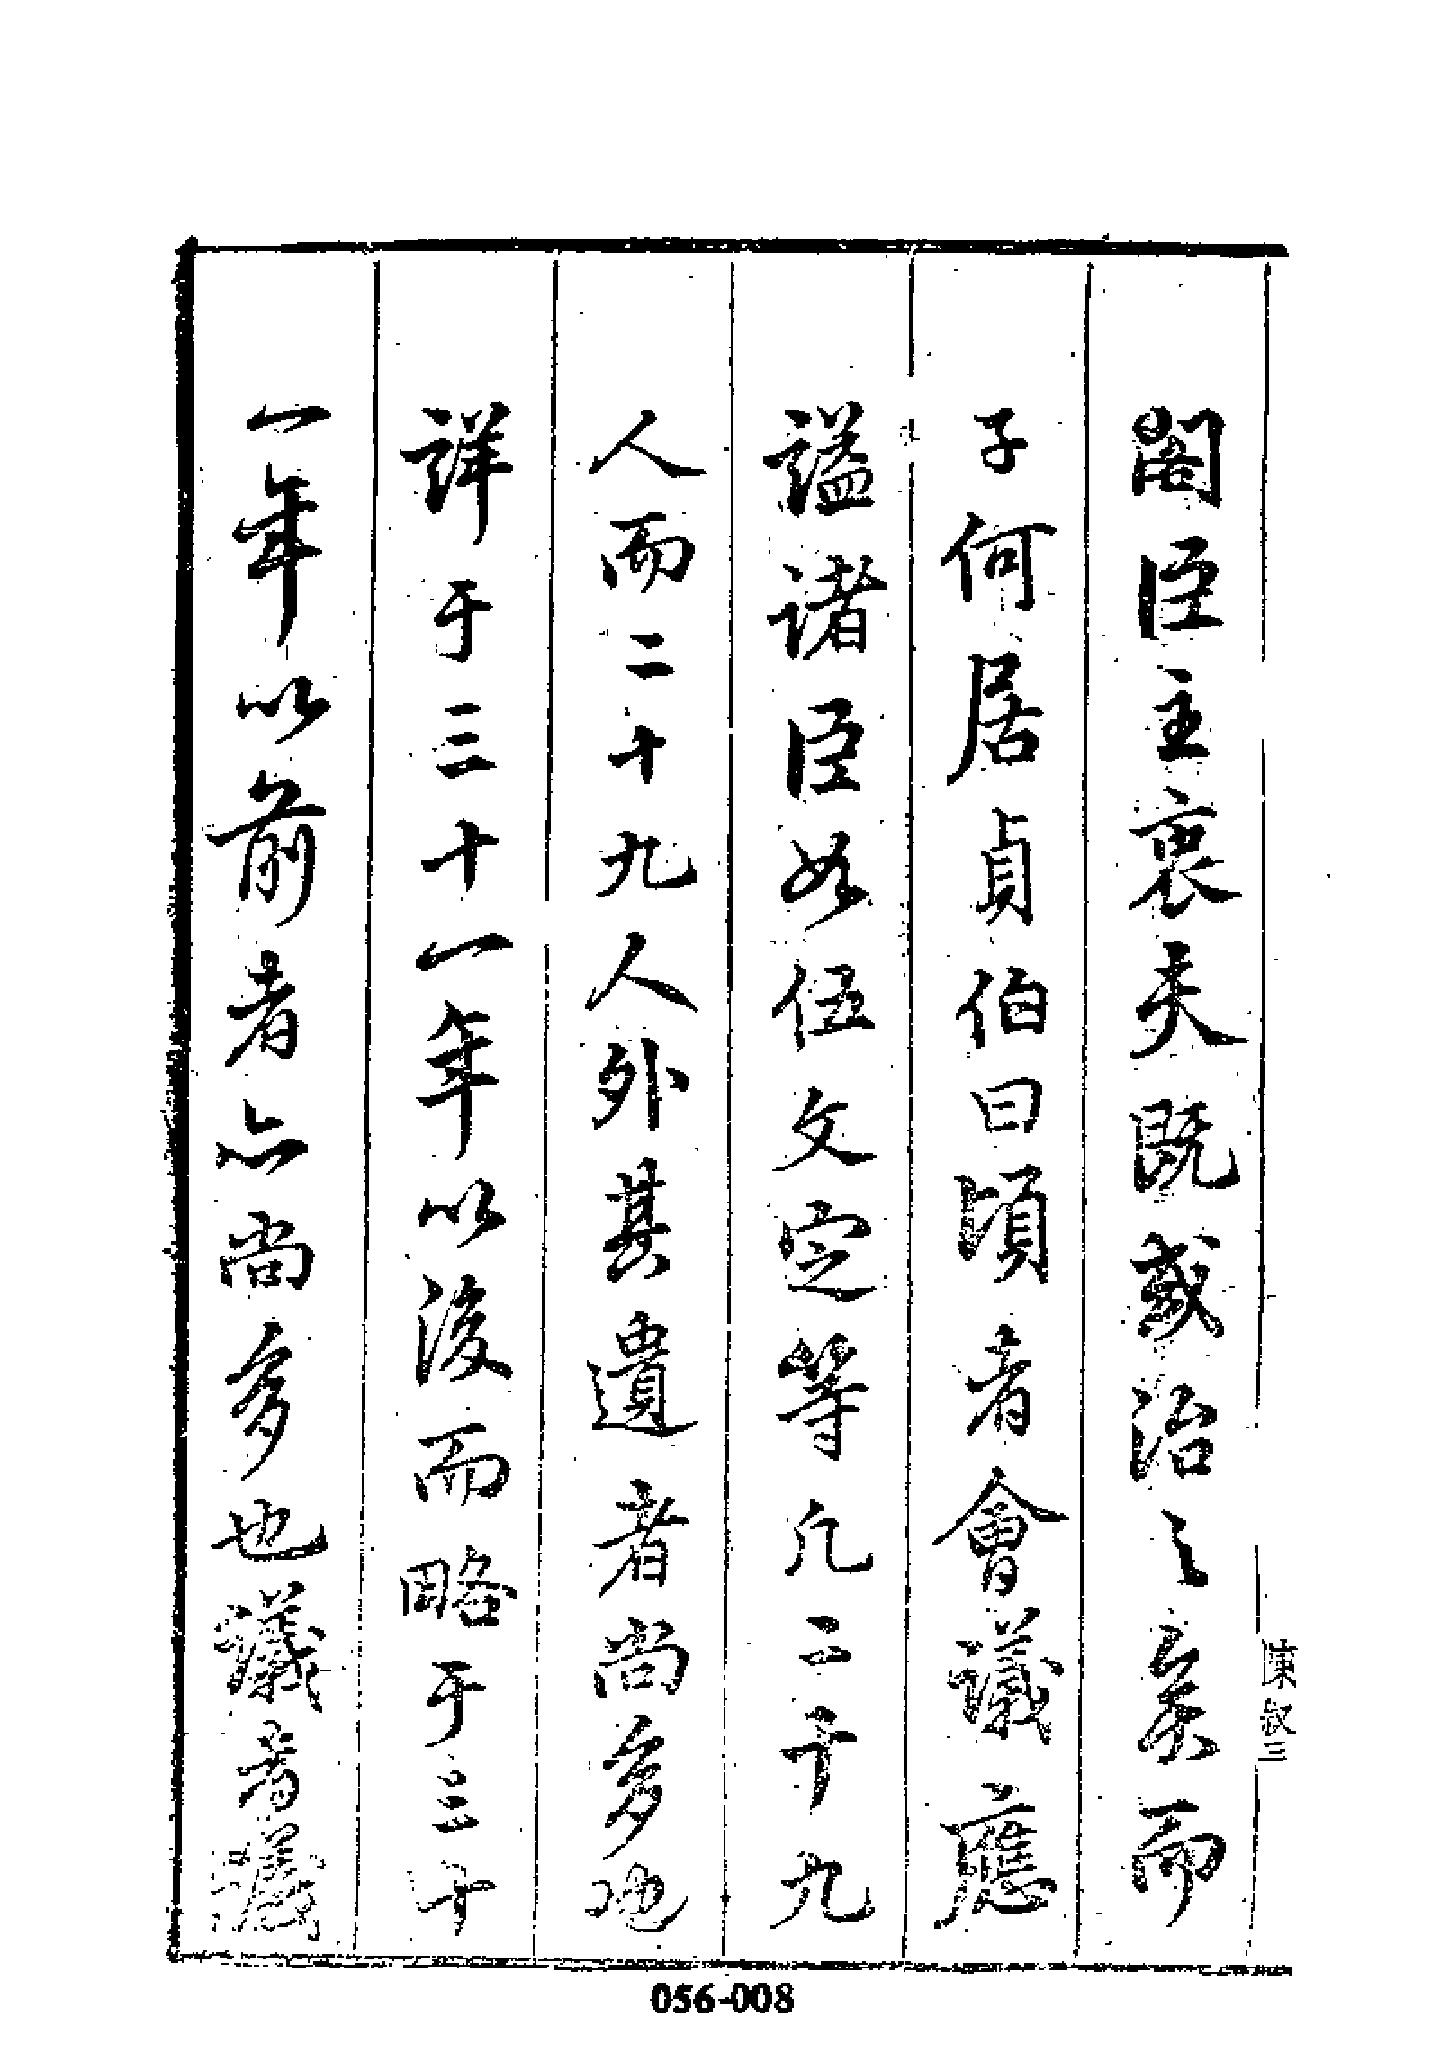 閣臣主裏夫既戴治之矣而
子何居貞伯曰頃者會議應
謚諸臣如伍文定等凡二十九
人而二十九人外甚遺者尚多也
詳于三十一年以後而略于三十
一年以前者亦尚多也議者議
陳叔三
056-008